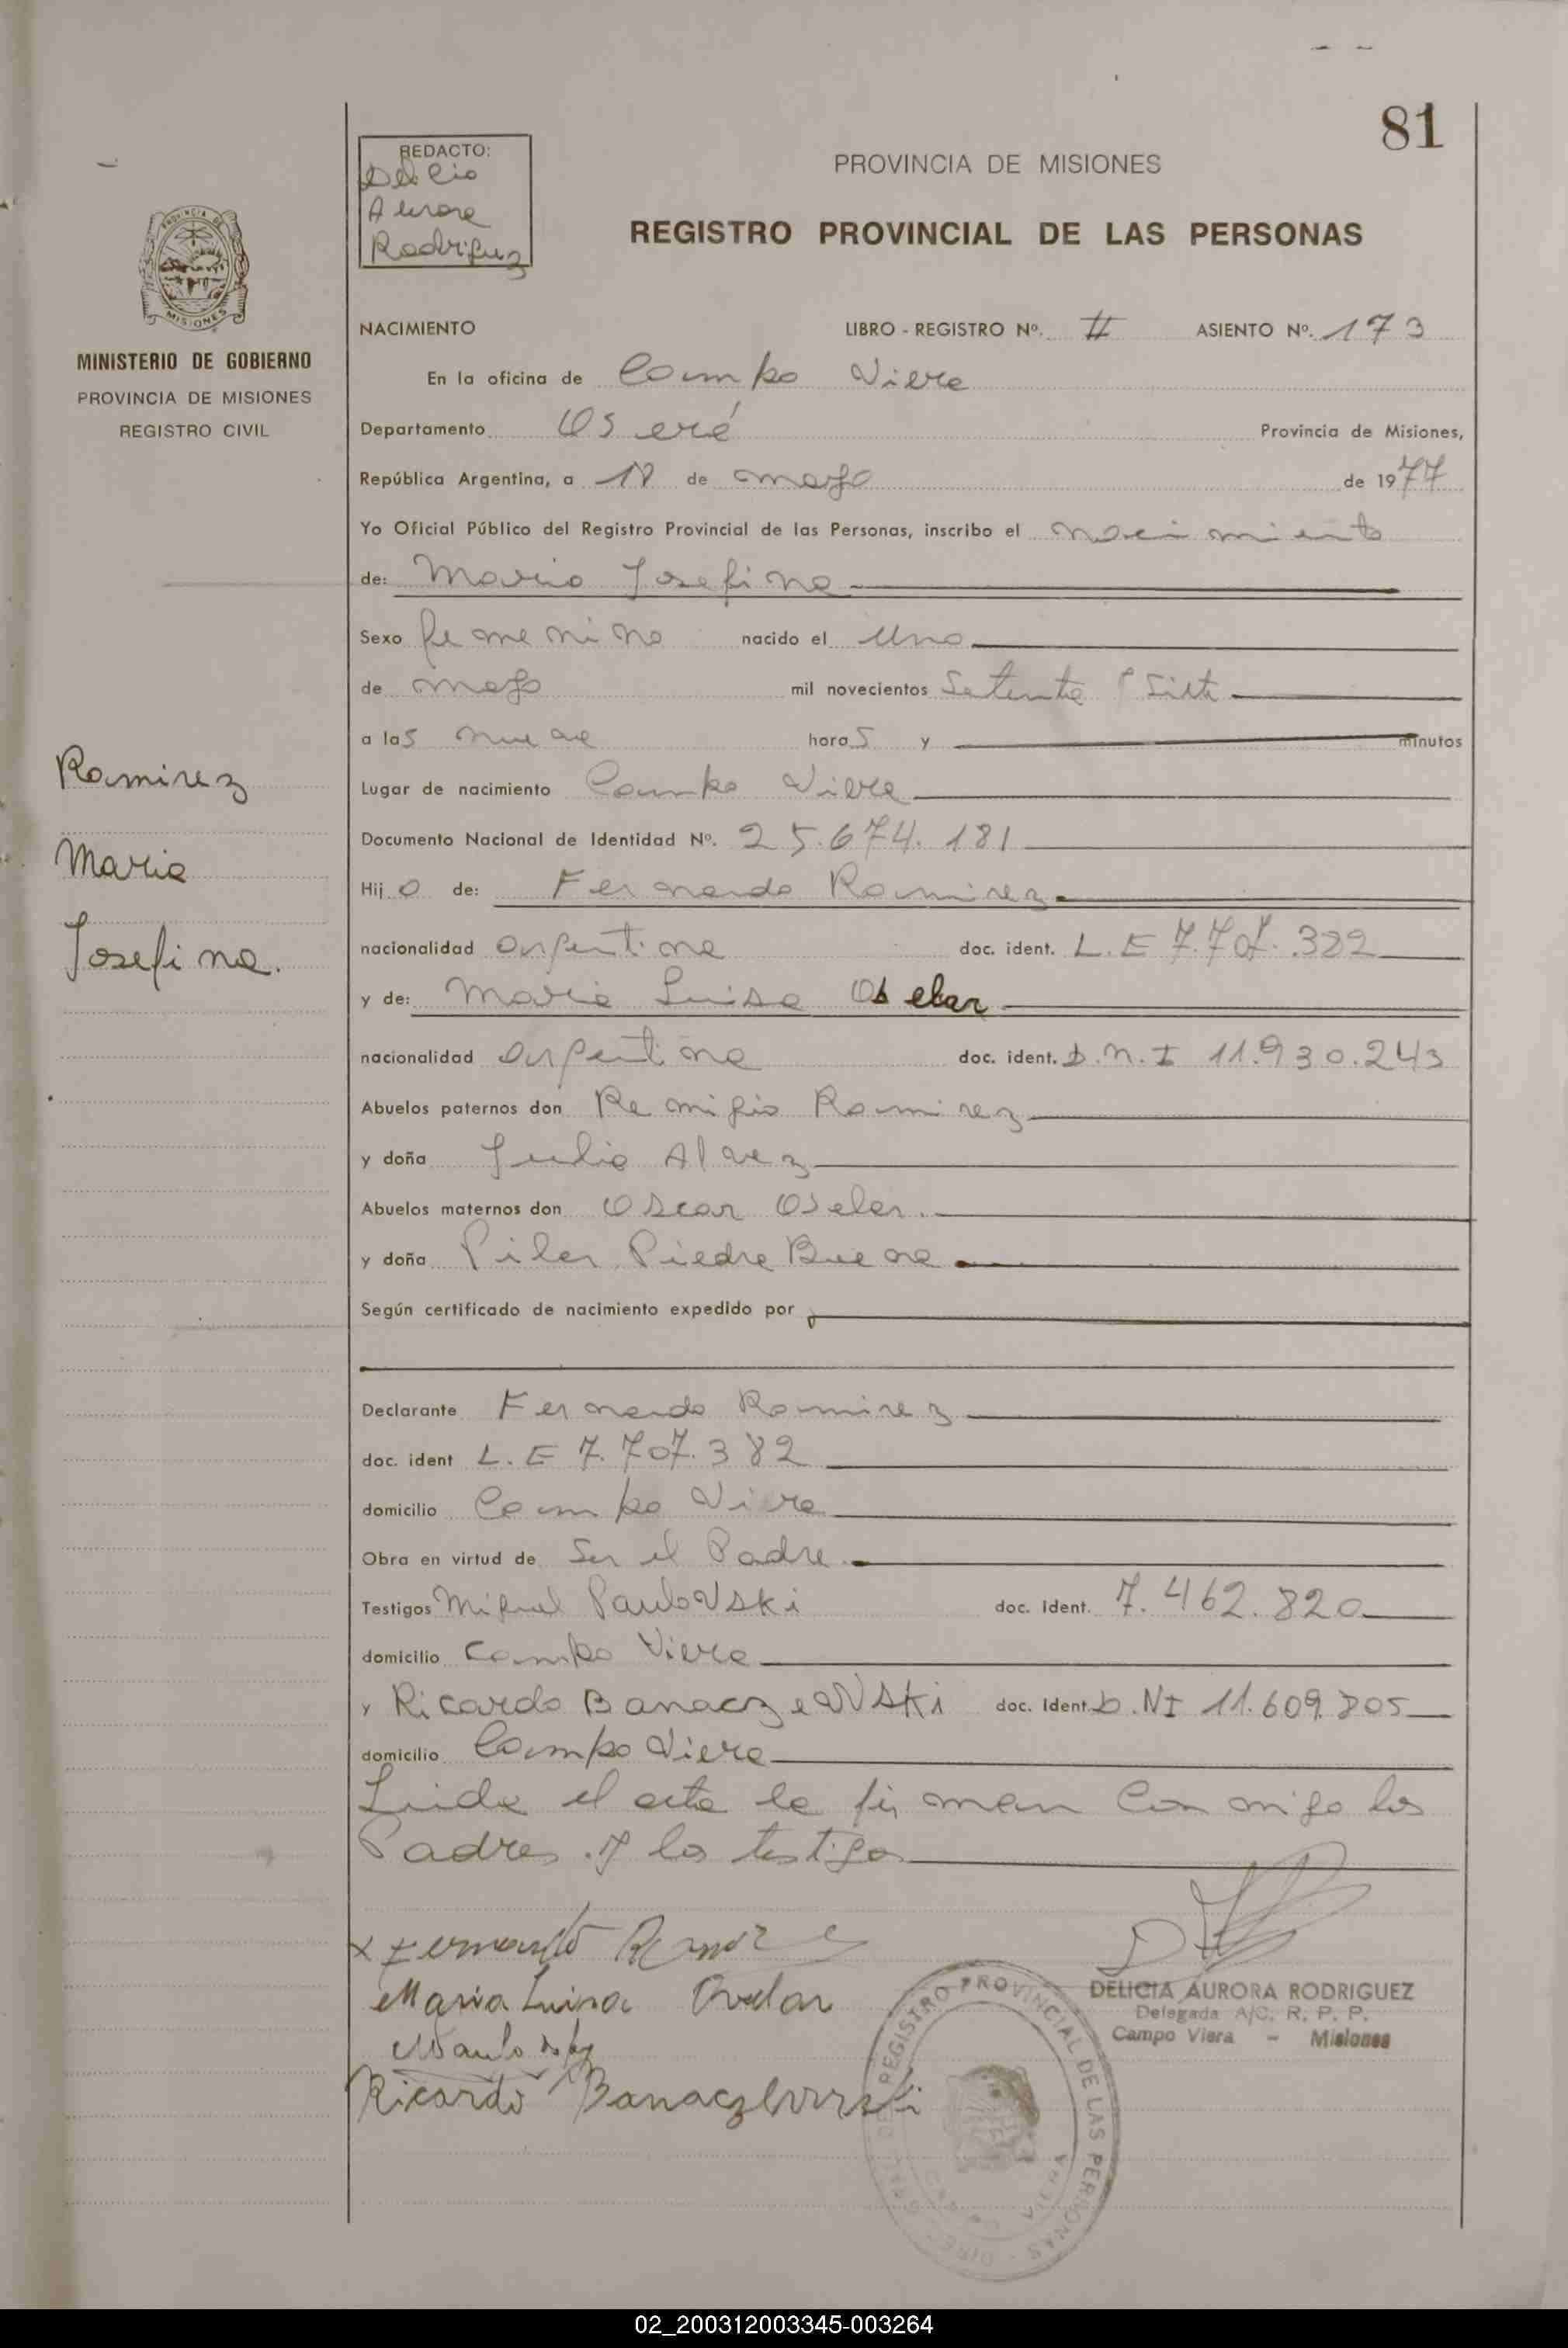 81
REDACTO:
Delicia
Aurora
Rodriguez
PROVINCIA DE MISIONES
REGISTRO PROVINCIAL DE LAS PERSONAS
MINISTERIO DE GOBIERNO
PROVINCIA DE MISIONES
REGISTRO CIVIL
NACIMIENTO LIBRO - REGISTRO Nº. II ASIENTO Nº. 173
En la oficina de Campo Viera
Departamento Oberá Provincia de Misiones,
República Argentina, a 18 de mayo de 1977
Yo Oficial Público del Registro Provincial de las Personas, inscribo el nacimiento
de: Maria Josefina
Sexo femenino nacido el Uno
de mayo mil novecientos Setenta y Siete
a las nueve horas y minutos
Lugar de nacimiento Campo Viera
Documento Nacional de Identidad Nº. 25.674.181
Ramirez
Maria
Josefina.
Hij a de: Fernando Ramirez
nacionalidad argentina doc. ident. L.E 7.707.382
y de: Maria Luisa
nacionalidad argentina doc. ident. D.N.I 11.930.243
Abuelos paternos don Remigio Ramirez
y doña Julia Alvez
Abuelos maternos don Oscar
y doña Pilar Piedra Buena
Según certificado de nacimiento expedido por
Declarante Fernando Ramirez
doc. ident L.E 7.707.382
domicilio Campo Viera
Obra en virtud de Ser el Padre
Testigos Miguel Paulovski doc. ident. 7.462.820
domicilio Campo Viera
y Ricardo Banaczewski doc. Ident. D.NI 11.609.805
domicilio Campo Viera
Leida el acta la firman conmigo los
Padres y los testigos
Fernando Ramirez
Maria Luisa
Ricardo Banaczewski
DELICIA AURORA RODRIGUEZ
Delegada A/C. R. P. P.
Campo Viera - Misiones
REGISTRO PROVINCIAL DE LAS PERSONAS
02_200312003345-003264